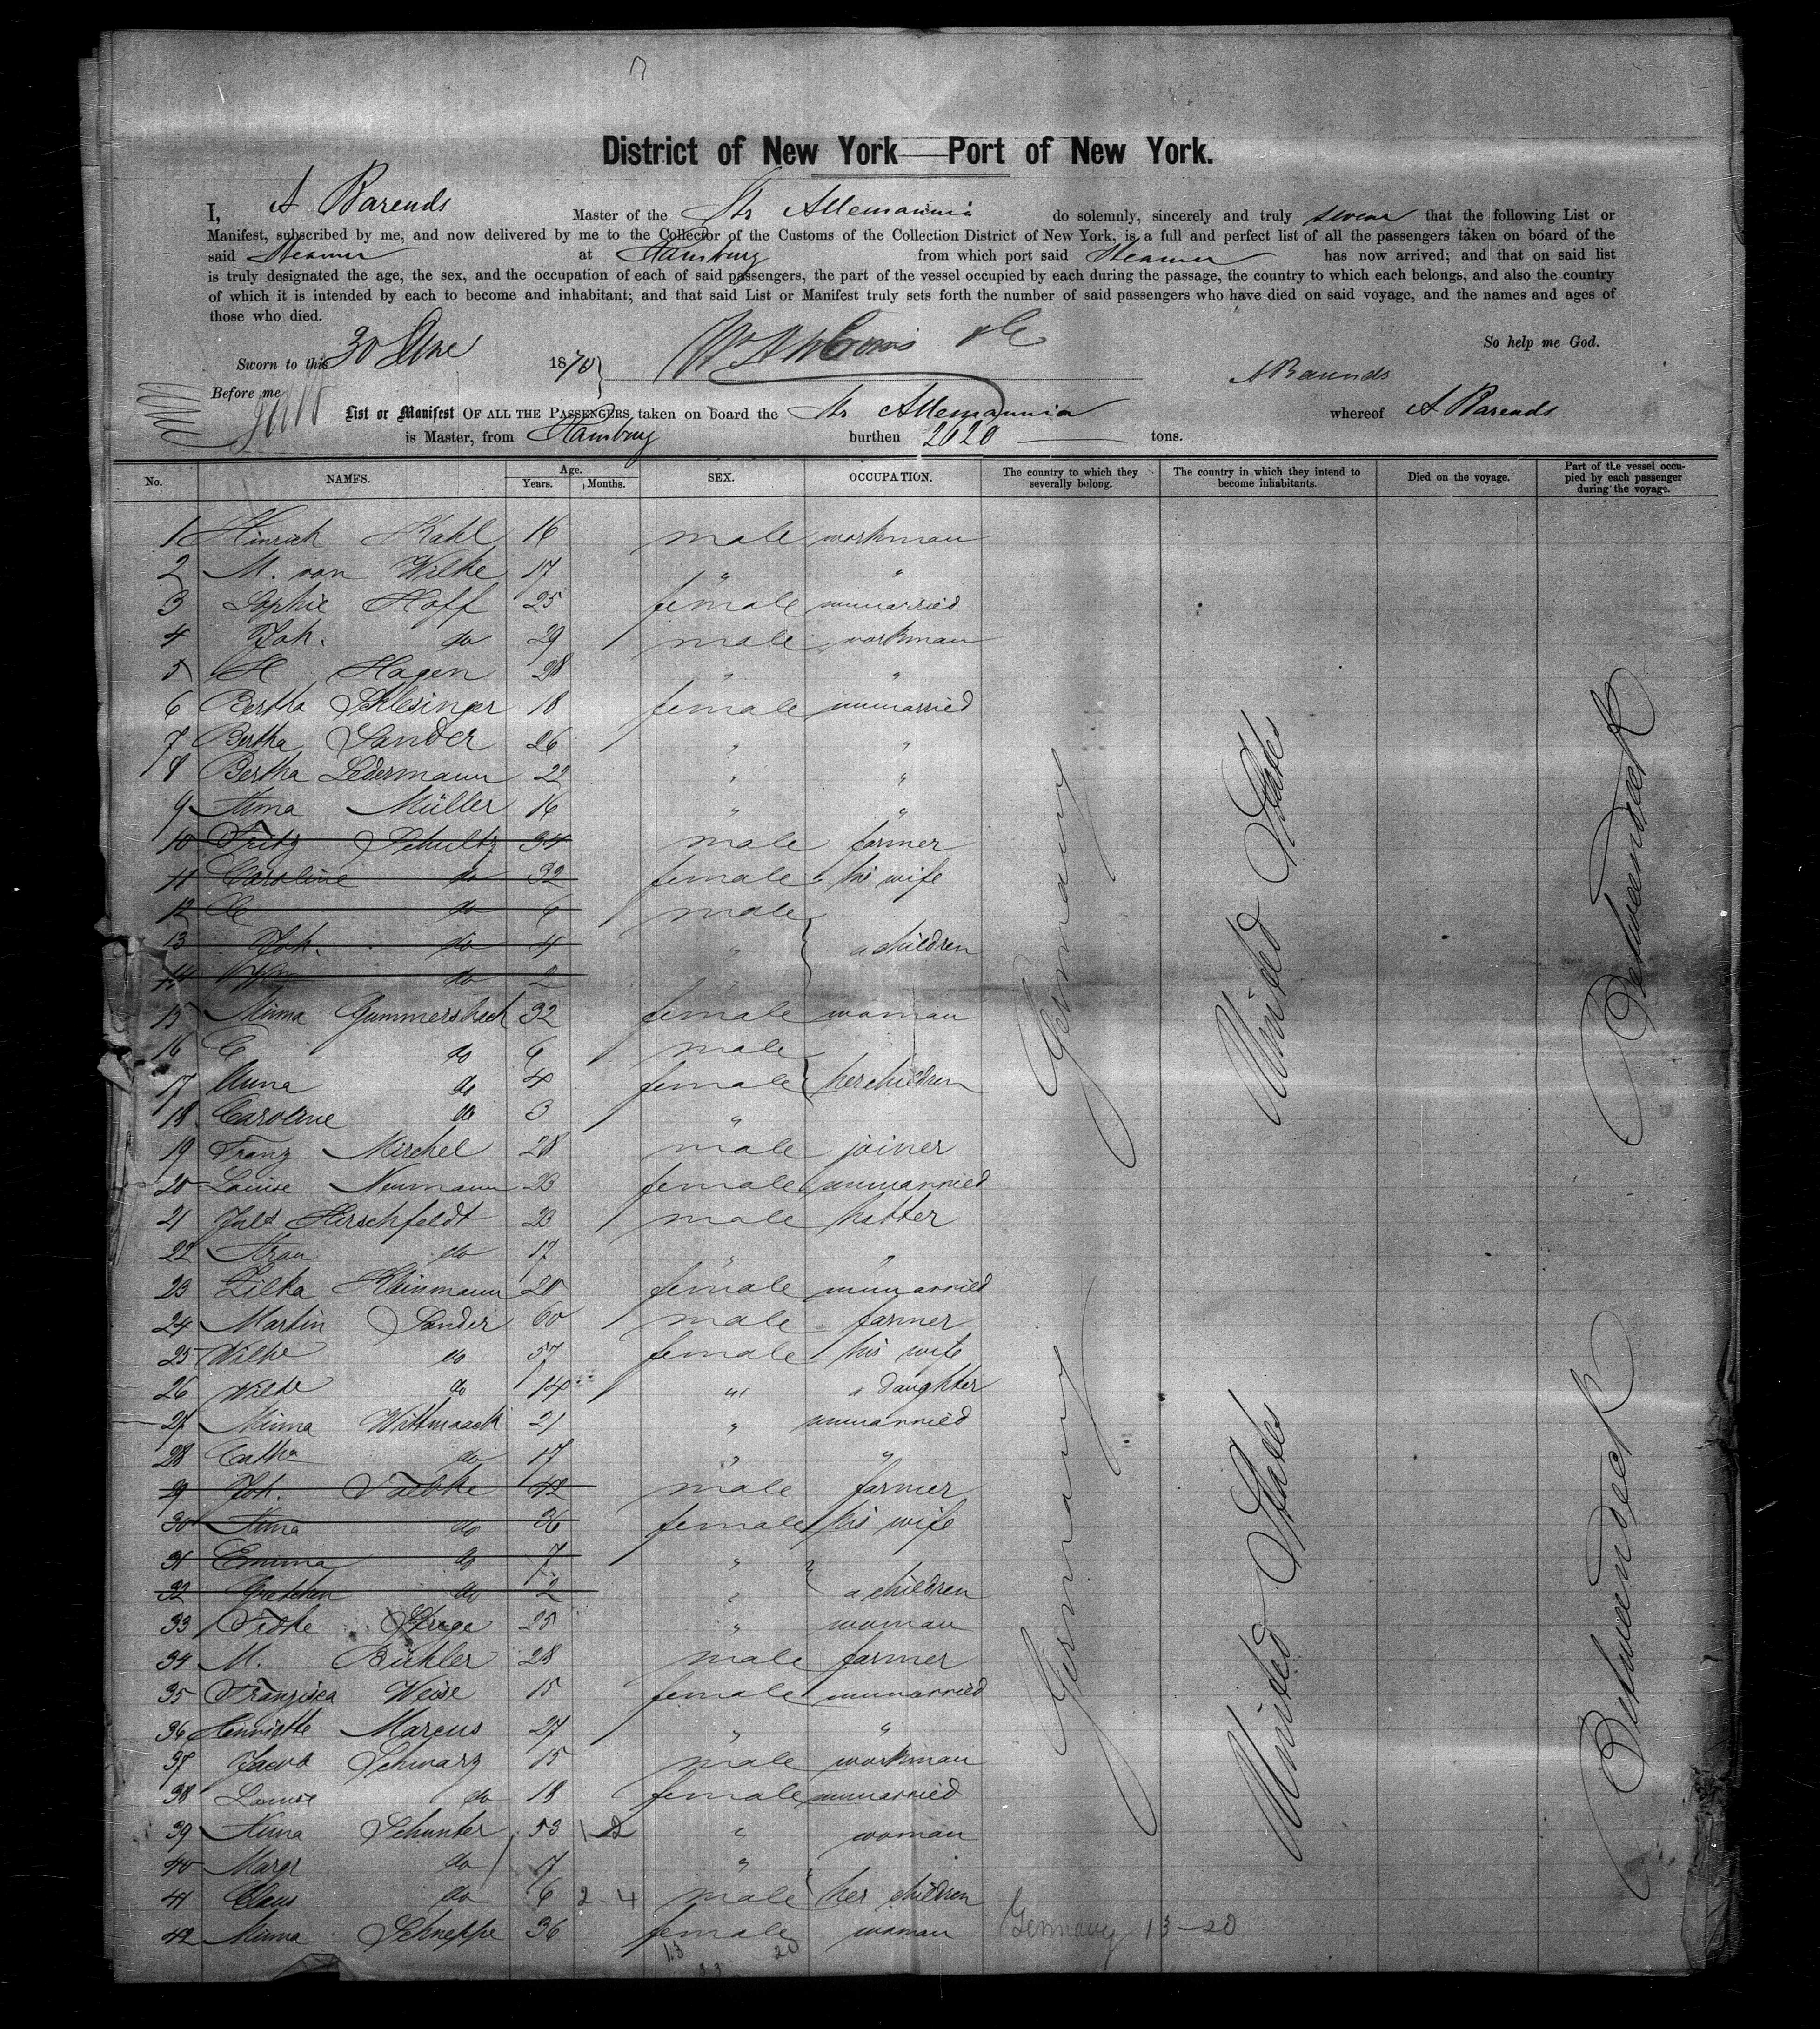 District of New York — Port of New York.
I, A Barends Master of the Str Allemannia do solemnly, sincerely and truly swear that the following List or
Manifest, subscribed by me, and now delivered by me to the Collector of the Customs of the Collection District of New York, is a full and perfect list of all the passengers taken on board of the
said Steamer at Hamburg from which port said Steamer has now arrived; and that on said list
is truly designated the age, the sex, and the occupation of each of said passengers, the part of the vessel occupied by each during the passage, the country to which each belongs, and also the country
of which it is intended by each to become and inhabitant; and that said List or Manifest truly sets forth the number of said passengers who have died on said voyage, and the names and ages of
those who died.
So help me God.
Sworn to this 30 1870
A Barends
Before me
List or Manifest OF ALL THE PASSENGERS taken on board the Str Allemannia whereof A Barends
is Master, from Hamburg burthen 2620 tons.
No. NAMES. Age. Years. Months. SEX. OCCUPATION. The country to which they severally belong. The country in which they intend to become inhabitants. Died on the voyage. Part of the vessel occupied by each passenger during the voyage.
1 Hinrich Kahl 16 male workman
2 M. von Wilke 17 " "
3 Sophie Hoff 25 female unmarried
4 Joh. do 29 male workman
5 H Hagen 28 " "
6 Bertha Schlesinger 18 female unmarried
7 Bertha Sander 26 " "
8 Bertha Ledermann 22 " "
9 Anna Müller 16 " "
10 Fritz Schultz 34 male farmer
11 Caroline do 32 female his wife
12 do 6 male
13 Joh. do 4 " " children
14 Wm do 2 "
15 Minna Gummersbach 32 female woman
16 C do 6 male
17 Anna do 4 female her children
18 Caroline do 3 "
19 Franz Mirchel 28 male joiner
20 Louise Neumann 23 female unmarried
21 Hirschfeldt 23 male hatter
22 do 17 " "
23 Zilka Kleinmann 20 female unmarried
24 Martin Sander 60 male farmer
25 Wilhe do 57 female his wife
26 Wilhe do 14 " " daughter
27 Minna Wittmaack 21 " unmarried
28 Catha do 17 " "
29 Joh. Taebke 42 male farmer
30 Anna do 36 female his wife
31 Emma do 7 " "
32 Gretchen do 2 " " children
33 25 " woman
34 M. Bühler 28 male farmer
35 Franzisca Weise 15 female unmarried
36 Henriette Marcus 27 " "
37 Jacob Schwarz 15 male workman
38 Louise do 18 female unmarried
39 Anna Schunter 53 " woman
40 Margr do 17 "
41 Claus do 6 2 4 male her children
42 Minna Schneppe 36 female woman Germany 13-20
13 20
Germany
United States
Betweendeck
Germany
United States
Betweendeck